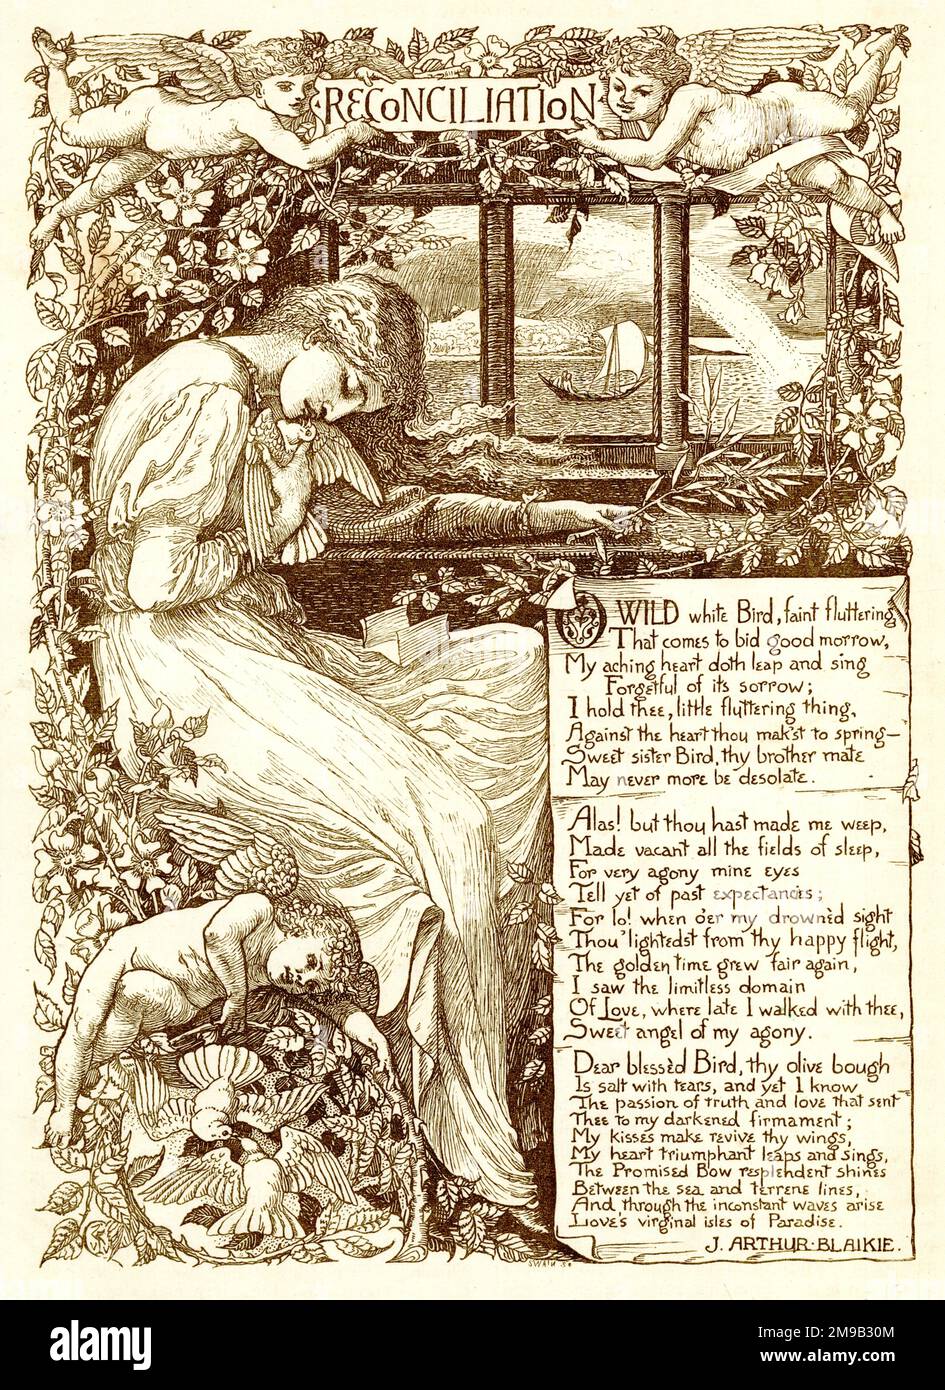 RECONCILIATION
O WILD white Bird, faint fluttering
That comes to bid good morrow,
My aching heart doth leap and sing
Forgetful of its sorrow;
I hold thee, little fluttering thing,
Against the heart thou mak'st to spring—
Sweet sister Bird, thy brother mate
May never more be desolate.
Alas! but thou hast made me weep,
Made vacant all the fields of sleep,
For very agony mine eyes
Tell yet of past expectancies;
For lo! when o'er my drownèd sight
Thou 'lightedst from thy happy flight,
The golden time grew fair again,
I saw the limitless domain
Of Love, where late I walked with thee,
Sweet angel of my agony.
Dear blessèd Bird, thy olive bough
Is salt with tears, and yet I know
The passion of truth and love that sent
Thee to my darkened firmament;
My kisses make revive thy wings,
My heart triumphant leaps and sings,
The Promised Bow resplendent shines
Between the sea and terrene lines,
And through the inconstant waves arise
Love's virginal isles of Paradise.
J. ARTHUR·BLAIKIE.
SWAIN Sc
alamy
Image ID: 2M9B30M
www.alamy.com